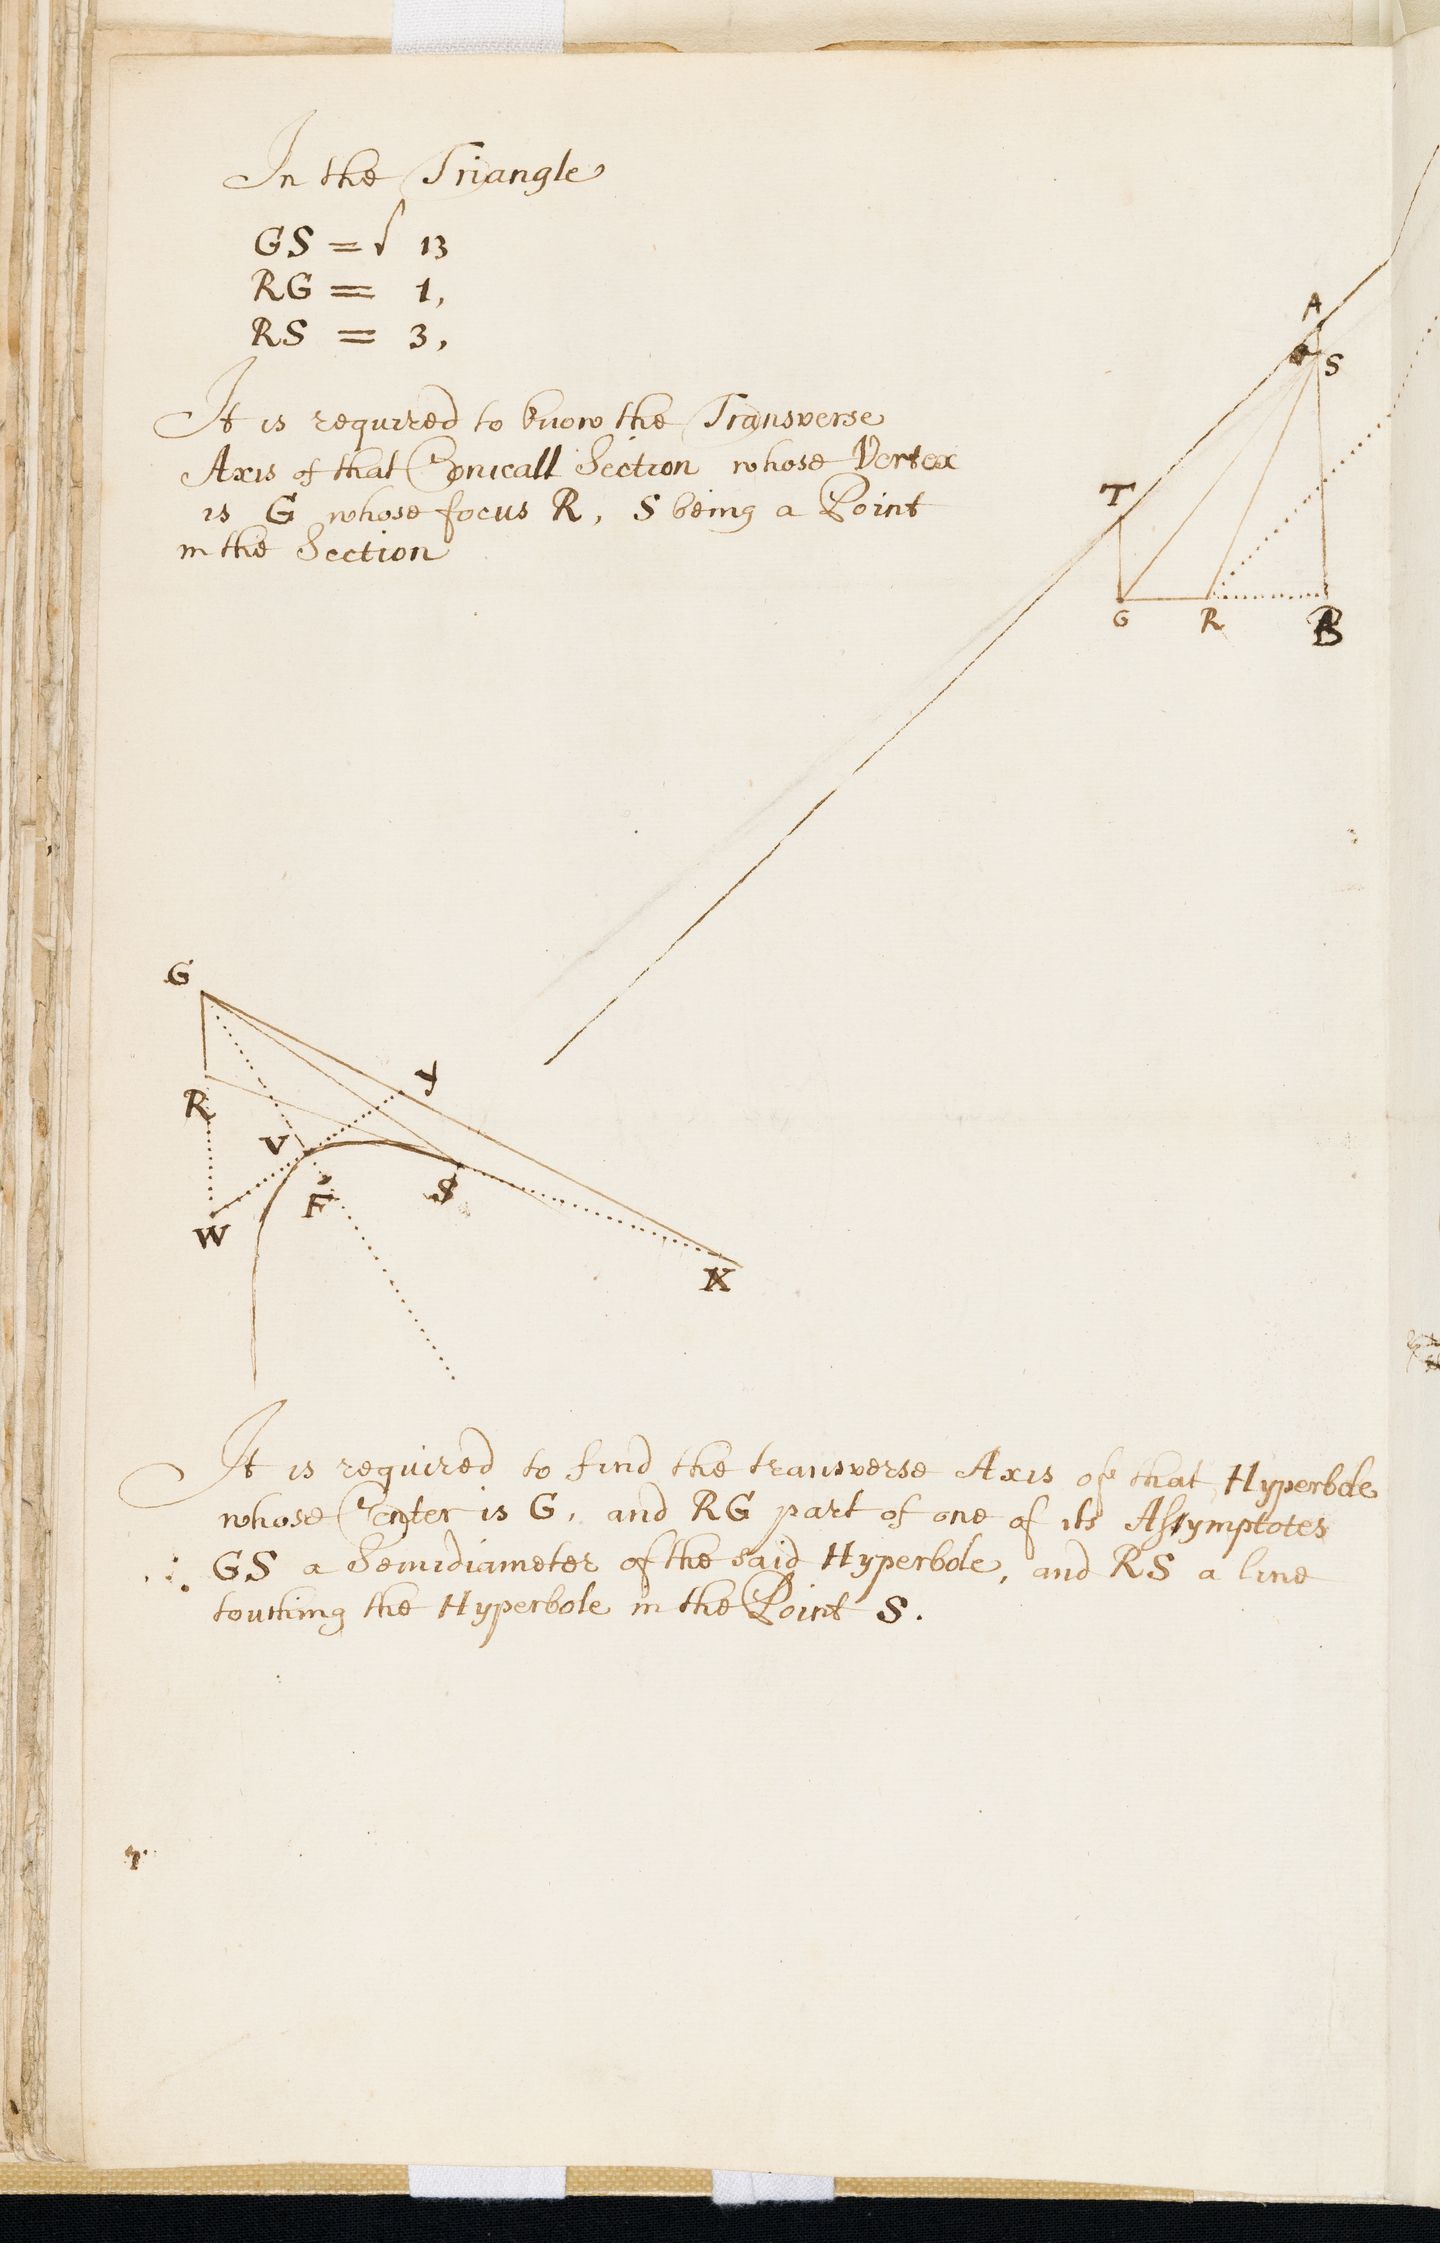 In the Triangle
GS = √ 13
RG = 1,
RS = 3,
It is required to know the Transverse
Axis of that Conicall Section whose Vertex
is G whose focus R, S being a Point
in the Section
A
S
T
G R B
G
y
R
V
F
S
W
X
It is required to find the transverse Axis of that Hyperbole
whose Center is G, and RG part of one of its Assymptotes
GS a Semidiameter of the said Hyperbole, and RS a line
touching the Hyperbole in the Point S.